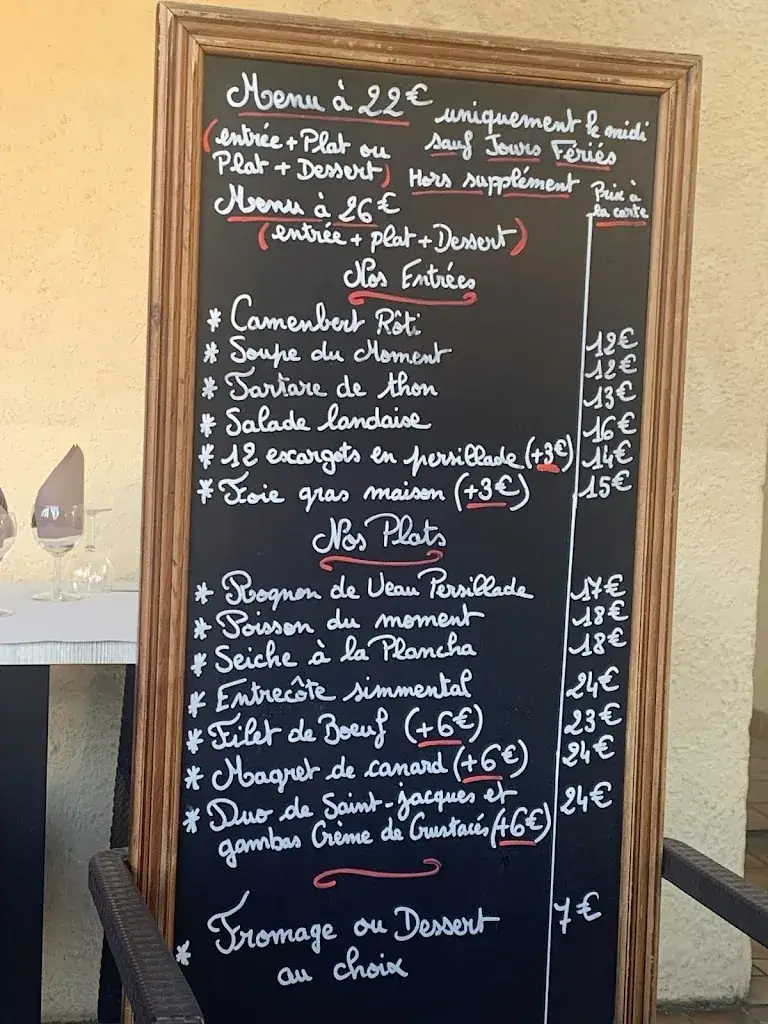 Menu à 22€ uniquement le midi
(entrée + Plat ou sauf Jours Fériés
Plat + Dessert) Hors supplément
Menu à 26€ Prix à la carte
(entrée + plat + Dessert)
Nos Entrées
* Camenbert Rôti 12€
* Soupe du Moment 12€
* Tartare de thon 13€
* Salade landaise 16€
* 12 escargots en persillade (+3€) 14€
* Foie gras maison (+3€) 15€
Nos Plats
* Rognon de Veau Persillade 17€
* Poisson du moment 18€
* Seiche à la Plancha 18€
* Entrecôte simmental 24€
* Filet de Boeuf (+6€) 23€
* Magret de canard (+6€) 24€
* Duo de Saint-jacques et
gambas Crème de Crustacés (+6€) 24€
* Fromage ou Dessert 7€
au choix